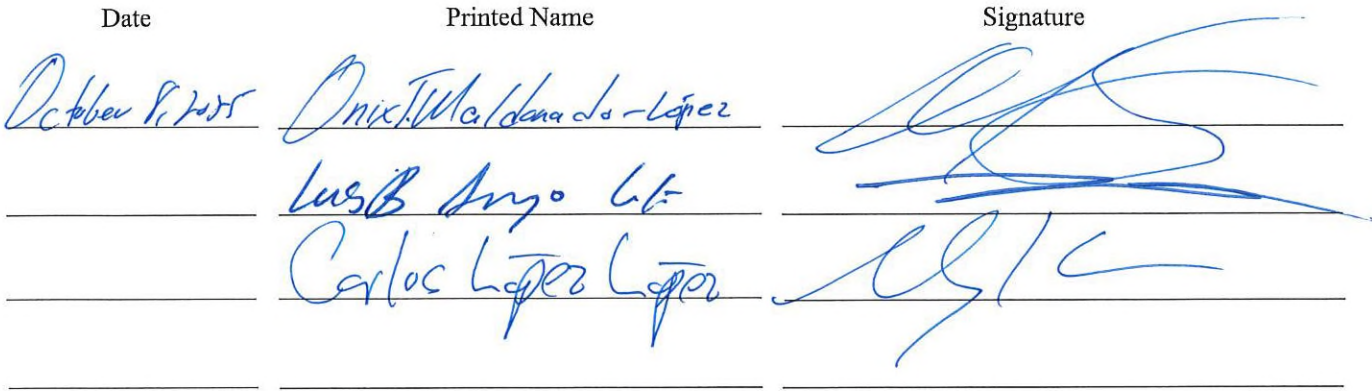 Date Printed Name Signature
October 8, 2025 Onix T. Maldonado-López
Luis B
Carlos López López